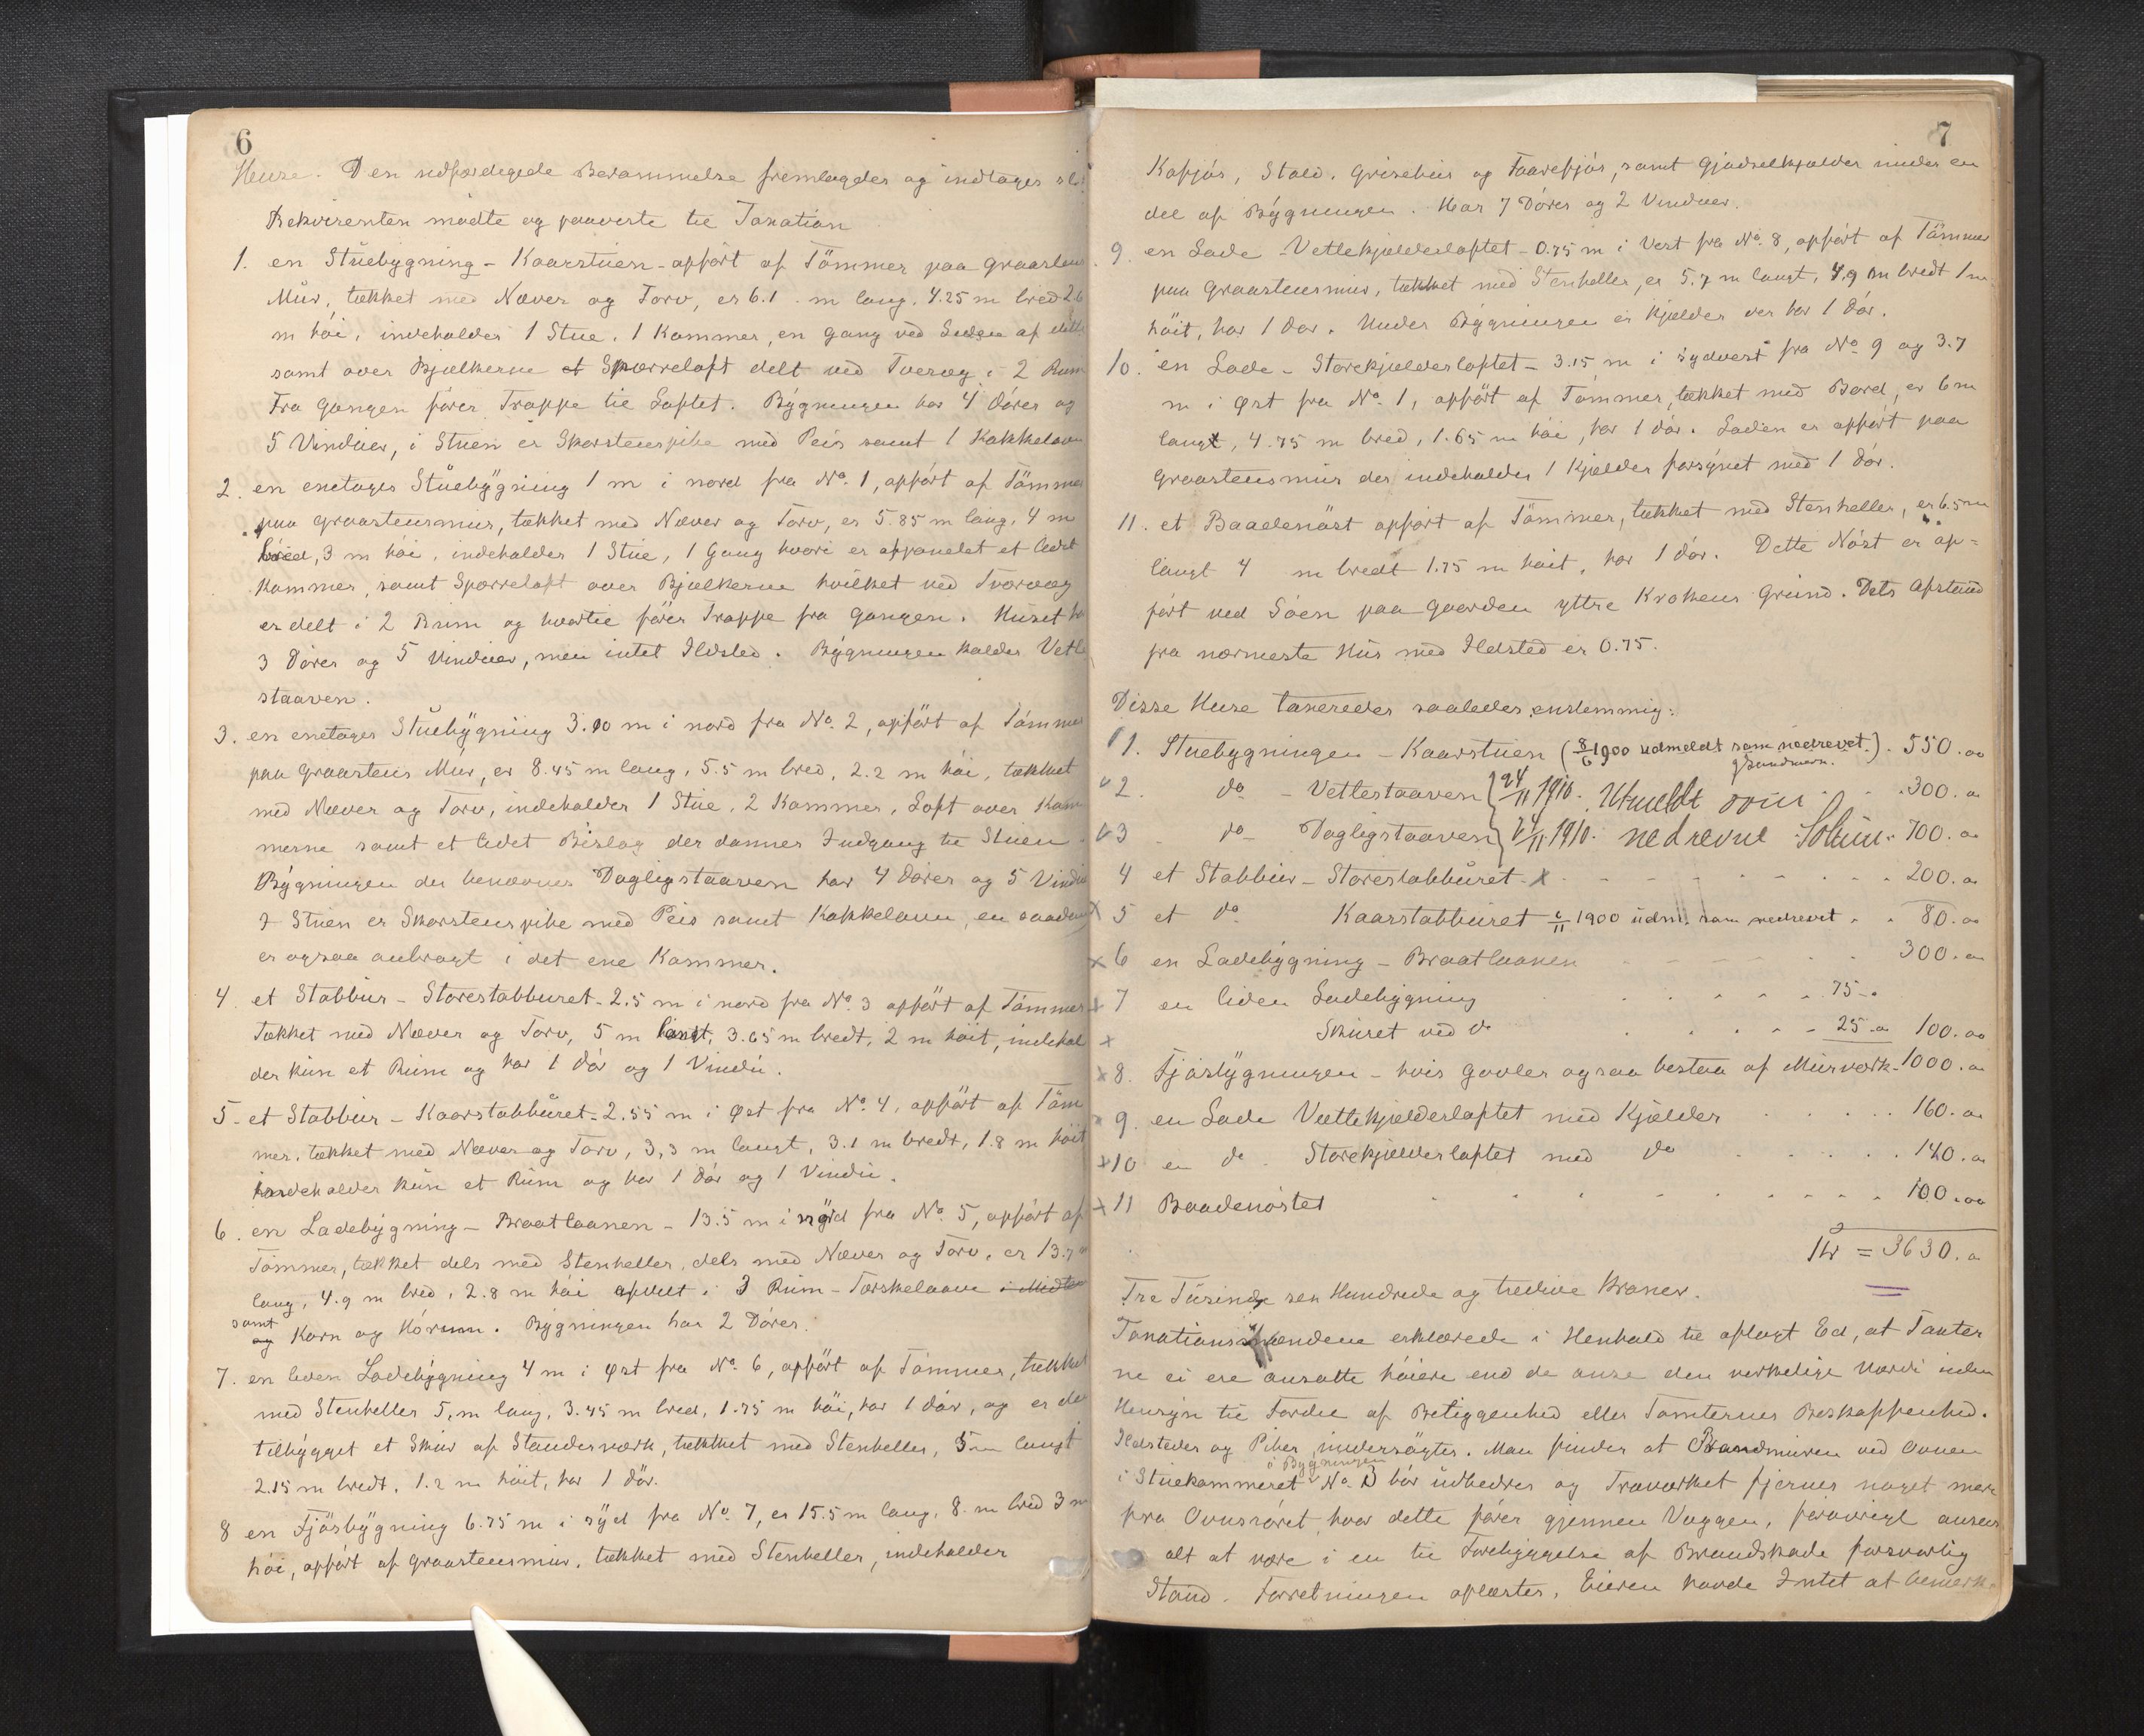 6
Huse. Den udfærdigede Berammelse fremlagdes og indtages
Rekvirenten mødte og paaviste til Taxation
1. en Stuebygning - Kaarstuen - opført af Tømmer paa Graasten
Mur, tækket med Næver og Torv, er 6.1 m lang, 4.25 m bred 2.6
m høi, indeholder 1 Stue, 1 Kammer, en Gang ved Siden af dette
samt over Bjelkerne et Sperreloft delt ved Tvervæg i 2 Rum
Fra Gangen fører Trappe til Loftet. Bygningen har 4 Døre og
5 Vinduer, i Stuen er Skorstenspibe med Peis samt 1 Kakkelovn
2. en enetages Stuebygning 1 m i nord fra No. 1, opført af Tømmer
paa Graastensmur, tækket med Næver og Torv, er 5.85 m lang, 4 m
bred, 3 m høi, indeholder 1 Stue, 1 Gang hvori er afpanelet et lidet
Kammer, samt Sperreloft over Bjelkerne hvilket ved Tvervæg
er delt i 2 Rum og hvortil fører Trappe fra Gangen. Huset har
3 Døre og 5 Vinduer, men intet Ildsted. Bygningen kaldes Vetle
staaven.
3. en enetages Stuebygning 3.10 m i nord fra No. 2, opført af Tømmer
paa Graastens Mur, er 8.45 m lang, 5.5 m bred, 2.2 m høi, tækket
med Næver og Torv, indeholder 1 Stue, 2 Kammer, Loft over Kam
merne samt et lidet Bislag der danner Indgang til Stuen.
Bygningen der benævnes Dagligstaaven har 4 Døre og 5 Vinduer
I Stuen er Skorstenspibe med Peis samt Kakkelovn, en saadan
er ogsaa anbragt i det ene Kammer.
4. et Stabbur - Storestabburet - 2.5 m i nord fra No. 3 opført af Tømmer
Tækket med Næver og Torv, 5 m langt, 3.65 m bredt, 2 m høit, indehol
der kun et Rum og har 1 Dør og 1 Vindu.
5 - et Stabbur - Kaarstabburet - 2.55 m i Øst fra No. 4, opført af Tøm
mer, tækket med Næver og Torv, 3,3 m langt, 3.1 m bredt, 1.8 m høit
indeholder kun et Rum og har 1 Dør og 1 Vindu.
6. en Ladebygning - Braatlaanen - 13.5 m i syd fra No. 5, opført af
Tømmer, tækket dels med Stenheller, dels med Næver og Torv, er 13.7 m
lang, 4.9 m bred, 2.8 m høi afdelt i 3 Rum - Tærskelaave i Midten
samt
og Korn og Hørum. Bygningen har 2 Døre.
7. en liden Ladebygning 4 m i Øst fra No. 6, opført af Tømmer, tækket
med Stenheller 5, m lang, 3.45 m bred, 1.75 m høi, har 1 Dør, og er der
tilbygget et Skur af Standerværk, tækket med Stenheller, 5 m langt
2.15 m bredt, 1.2 m høit, har 1 Dør.
8 en Fjøsbygning 6.75 m i syd fra No. 7, er 15.5 m lang, 8. m bred 3 m
høi, opført af Graastensmur, tækket med Stenheller, indeholder
7
Kofjøs, Stald, Grisehus og Faarefjøs, samt Gjødselkjelder under en
del af Bygningen. Har 7 Døre og 2 Vinduer.
9. en Lade - Vetlekjelderloftet - 0.75 m i Vest fra No. 8, opført af Tømmer
paa Graastensmur, tækket med Stenheller, er 5.7 m langt, 4,9 m bredt 1 m
høit, har 1 Dør. Under Bygningen er Kjelder der har 1 Dør.
10. en Lade - Storekjelderloftet - 3.15 m i sydvest fra No. 9 og 3.7
m i Øst fra No. 1, opført af Tømmer, tækket med Bord, er 6 m
langt, 4.75 m bred, 1.65 m høi, har 1 Dør. Laden er opført paa
Graastensmur der indeholder 1 Kjelder forsynet med 1 Dør.
11. et Baadenøst opført af Tømmer, tækket med Stenheller, er 6.5 m
langt 4 m bredt 1.75 m høit, har 1 Dør. Dette Nøst er op-
ført ved Søen paa Gaarden yttre Krokens Grund. Dets Afstand
fra nærmeste Hus med Ildsted er 0.75.
Disse Huse taxeredes saaledes enstemmig:
1. Stuebygningen - Kaarstuen (8/6 1900 udmeldt som nedrevet.) 550.00
2. do - Vetlestaaven 24/11 1910. Utmeldt som 300.00
3 do - Dagligstaaven 24/11 1910. nedrevne 700.00
4 et Stabbur - Storestabburet x 200.00
x 5 et do Kaarstabburet 6/11 1900 udm. som nedrevet 80.00
x 6 en Ladebygning - Braatlaanen 300.00
x 7 en liden Ladebygning 75 -
x Skuret ved do 25.00 100.00
x 8. Fjøsbygningen - hvis Gavler ogsaa bestaa af Murværk - 1000.00
9. en Lade Vetlekjelderloftet med Kjelder 160.00
x 10 en do. Storekjelderloftet med do 140.00
x 11 Baadenøstet 100.00
Kr = 3630.00
Tre Tusinde sex Hundrede og tredive Kroner.
Taxationsmændene erklærede i Henhold til aflagt Ed, at Taxter
ne ei ere ansatte høiere end de anse den virkelige Værdi uden
Hensyn til Fordel af Beliggenhed eller Tomternes Beskaffenhed.
Ildsteder og Piber undersøgtes. Man finder at Brandmuren ved Ovnen
i Bygningen
i Stuekammeret No. 3 bør udbedres og Træværket fjernes noget mere
fra Ovnsrøret, hvor dette fører gjennem Væggen, forøvrigt ansees
alt at være i en til Forebyggelse af Brandskade forsvarlig
Stand. Forretningen oplæstes, Eieren havde Intet at bemerke